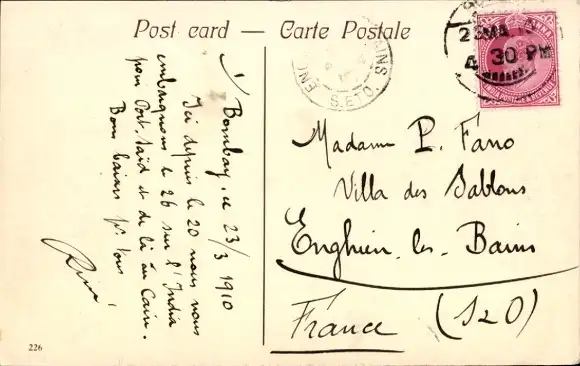 Post card — Carte Postale
1) Bombay, le 23/3 1910
Ici depuis le 20 nous nous
embarquons le 26 sur l'India
pour Port-Saïd et de là au Caire.
Bons baisers pr tous
Madame P. Fano
Villa des Sablons
Enghien-les-Bains
France (S&O)
ENG AINS
S.ETO.
23MA
4 30 PM
226